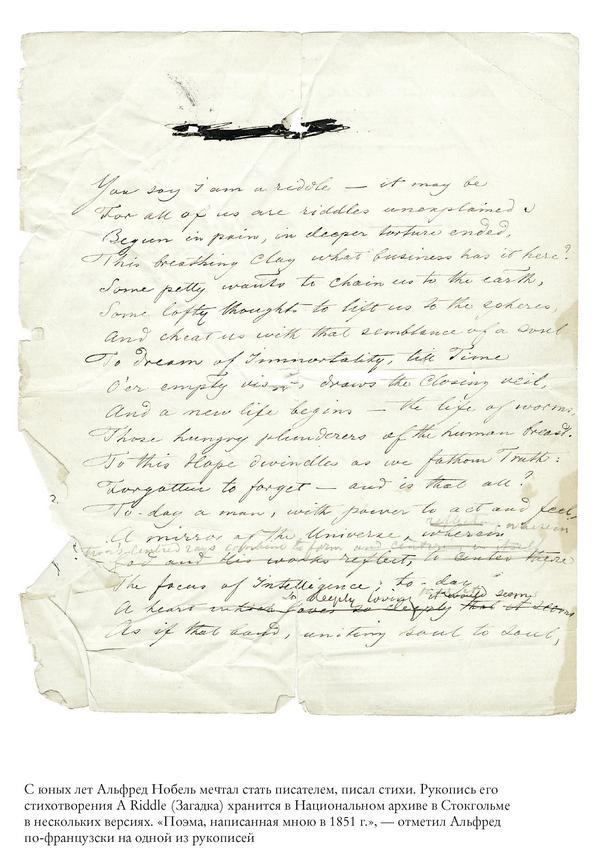 You say I am a riddle — it may be
For all of us are riddles unexplained
Begun in pain, in deeper torture ended,
This breathing Clay what business has it here?
Some petty wants to chain us to the earth,
Some lofty thoughts to lift us to the spheres,
And cheat us with that semblance of a soul
To dream of Immortality, till Time
O'er empty visions draws the Closing veil,
And a new life begins — the life of worms,
Those hungry plunderers of the human breast.
To this Hope dwindles as we fathom Truth:
Forgotten to forget — and is that all?
To-day a man, with power to act and feel,
A mirror of the Universe, wherein
reflect, to center there
The focus of Intelligence; to-day
to deeply loving seems
A heart which loves so deeply that it seems
As if that bond, uniting soul to soul,
С юных лет Альфред Нобель мечтал стать писателем, писал стихи. Рукопись его
стихотворения A Riddle (Загадка) хранится в Национальном архиве в Стокгольме
в нескольких версиях. «Поэма, написанная мною в 1851 г.», — отметил Альфред
по-французски на одной из рукописей